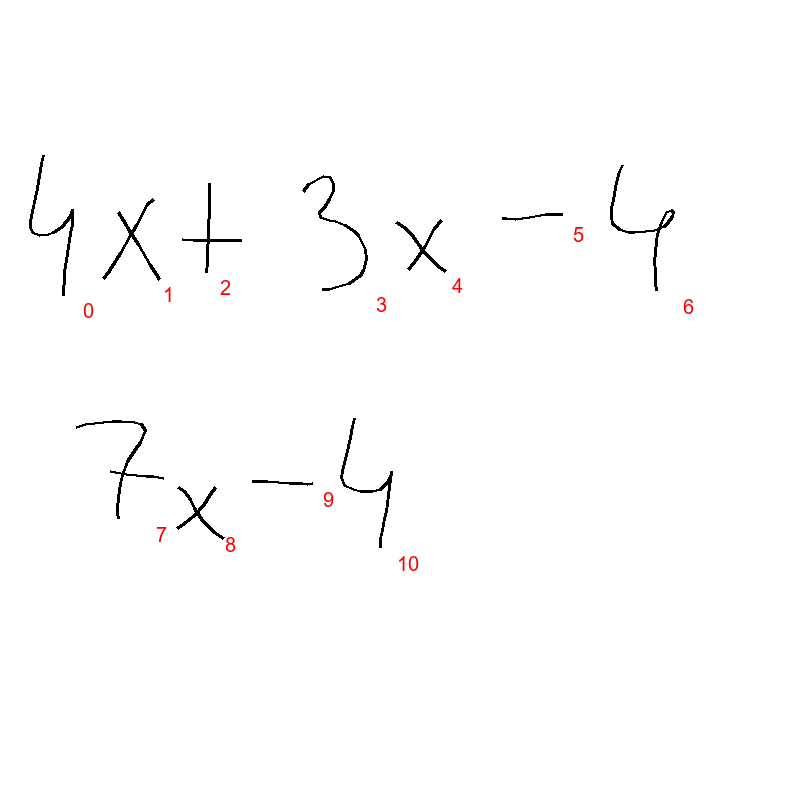 4x+3x-4
0 1 2 3 4 5 6
7x-4
7 8 9 10